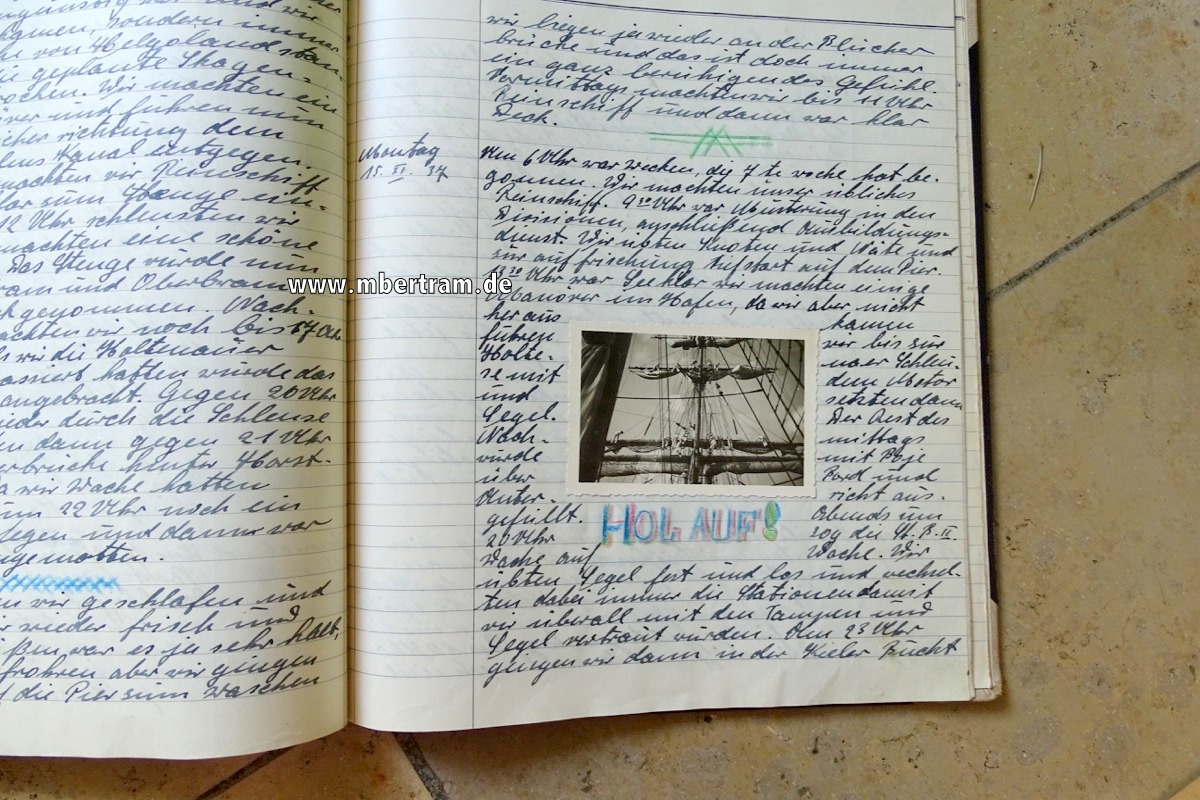 von Helgoland
die geplante Skagen-
Wir machten
und fuhren nun
richtung dem
Kanal entgegen.
machten wir Reinschiff
klar zum Stenge ein-
12 Uhr schleusten wir
machten eine schöne
Das Stenge wurde nun
und Oberbram
genommen. Nach-
machten wir noch bis 17 Uhr
wir die Holtenauer
passiert hatten wurde das
angebracht. Gegen 20 Uhr
wieder durch die Schleuse
dann gegen 21 Uhr
brücke hinter Horst-
wir Wache hatten
um 22 Uhr noch ein
und dann war
wir geschlafen und
wieder frisch und
war es ja sehr kalt,
frohren aber wir gingen
die Pier zum waschen
wir liegen ja wieder an der Blücher
brücke und das ist doch immer
ein ganz beruhigendes Gefühl.
Vormittags machten wir bis 11 Uhr
Reinschiff und dann war klar
Deck.
Montag
15. XI. 37
Um 6 Uhr war wecken, die 7te woche hat be-
gonnen. Wir machten unser übliches
Reinschiff. 9³⁰ Uhr war Musterung in den
Divisionen, anschließend Ausbildungs-
dienst. Wir übten Knoten und Näte und
zur auffrischung Tiefstart auf dem Pier.
Uhr war Seeklar wir machten einige
Manöver im Hafen, da wir aber nicht
her aus kamen
führen wir bis zur
Holte- nauer Schleu-
se mit dem Motor
und setzten dann
Segel. Der Rest des
Nach- mittags
würde mit Boje
über Pord und
Unter- richt aus.
gefüllt. Abends um
HOL AUF!
20 Uhr zog die St. B. II
Wache auf Wache. Wir
übten Segel fest und los und wechsel-
ten dabei immer die Stationen damit
wir überall mit den Tampen und
Segel vertraut würden. Um 23 Uhr
gingen wir dann in der Kieler Bucht
www.mbertram.de